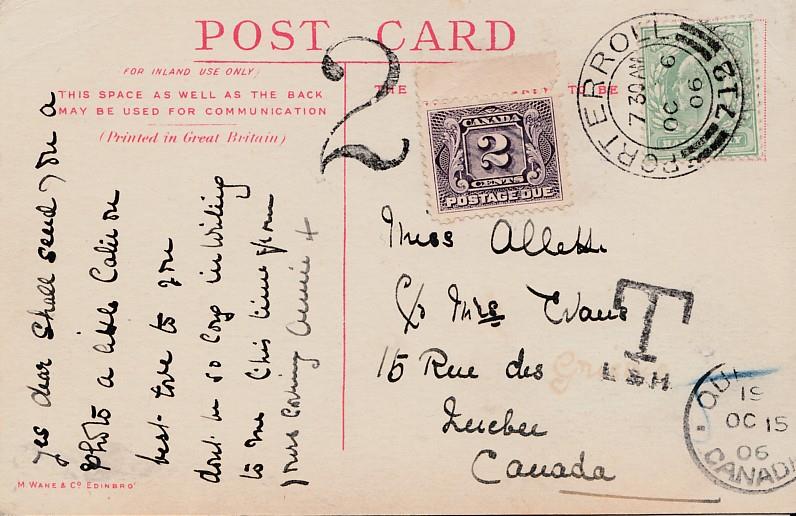 POST CARD
FOR INLAND USE ONLY
THIS SPACE AS WELL AS THE BACK
MAY BE USED FOR COMMUNICATION
(Printed in Great Britain)
THE
TO BE
2
CANADA
2
CENTS
POSTAGE DUE
PORTERROLL
7 30 AM
OC 9
06
712
yes dear shall send you a
Photo a little later on
best love to you
dont be so long in writing
to me this time from
yours loving Annie +
Miss
c/o Mrs Evans
15 Rue des
Quebec
Canada
T
L & H
QUE
15
OC 15
06
CANADA
M. WANE & Co EDINBRO'